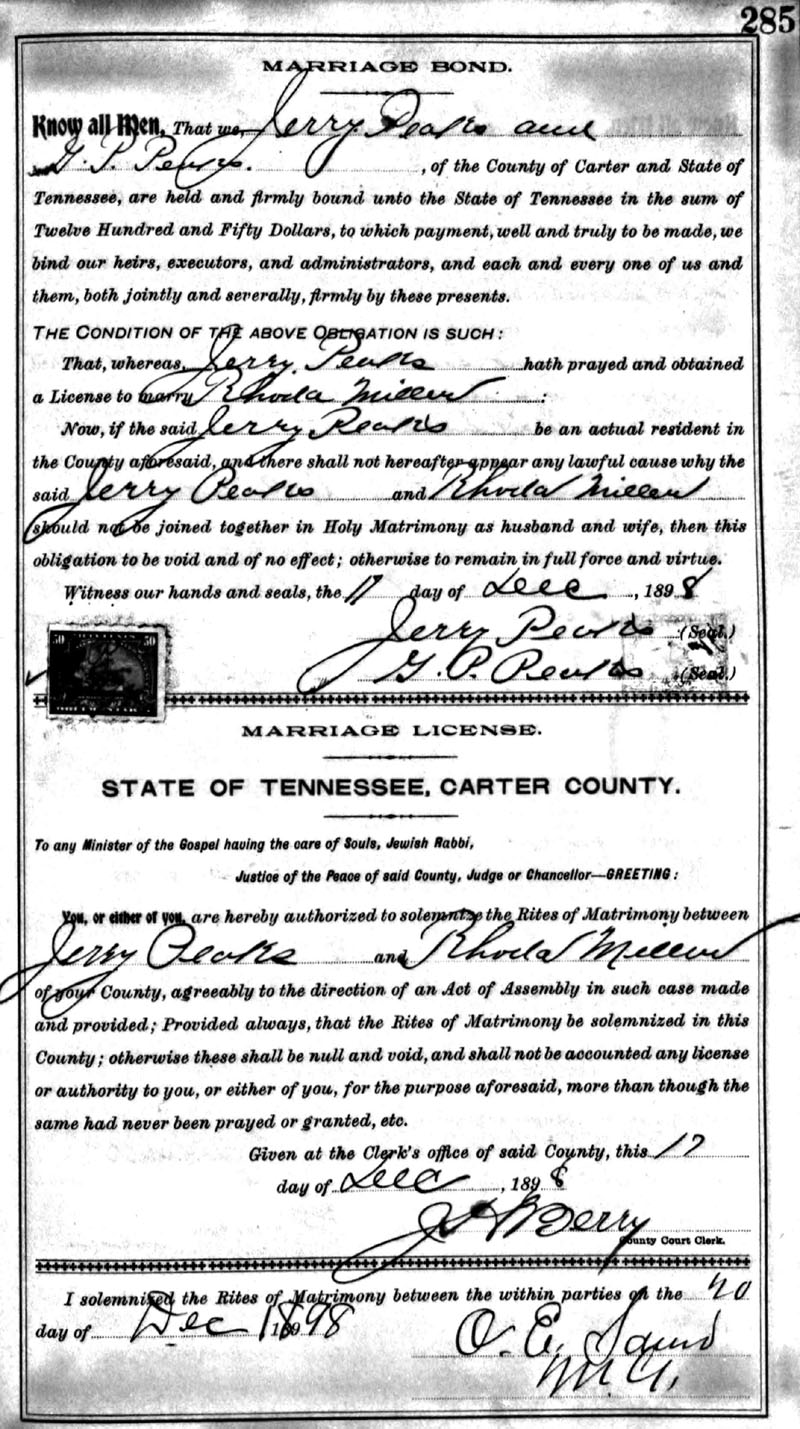 285
MARRIAGE BOND.
Know all Men, That we, Jerry Peaks and
G. P. Peaks. , of the County of Carter and State of
Tennessee, are held and firmly bound unto the State of Tennessee in the sum of
Twelve Hundred and Fifty Dollars, to which payment, well and truly to be made, we
bind our heirs, executors, and administrators, and each and every one of us and
them, both jointly and severally, firmly by these presents.
THE CONDITION OF THE ABOVE OBLIGATION IS SUCH:
That, whereas, Jerry Peaks hath prayed and obtained
a License to marry Rhoda Miller :
Now, if the said Jerry Peaks be an actual resident in
the County aforesaid, and there shall not hereafter appear any lawful cause why the
said Jerry Peaks and Rhoda Miller
should not be joined together in Holy Matrimony as husband and wife, then this
obligation to be void and of no effect; otherwise to remain in full force and virtue.
Witness our hands and seals, the 17 day of Dec , 1898
Jerry Peaks (Seal.)
G. P. Peaks (Seal.)
50 50
MARRIAGE LICENSE.
STATE OF TENNESSEE, CARTER COUNTY.
To any Minister of the Gospel having the care of Souls, Jewish Rabbi,
Justice of the Peace of said County, Judge or Chancellor—GREETING:
You, or either of you, are hereby authorized to solemnize the Rites of Matrimony between
Jerry Peaks and Rhoda Miller
of your County, agreeably to the direction of an Act of Assembly in such case made
and provided; Provided always, that the Rites of Matrimony be solemnized in this
County; otherwise these shall be null and void, and shall not be accounted any license
or authority to you, or either of you, for the purpose aforesaid, more than though the
same had never been prayed or granted, etc.
Given at the Clerk's office of said County, this 17
day of Dec , 1898
J H Berry
County Court Clerk.
I solemnized the Rites of Matrimony between the within parties on the 20
day of Dec 1898
O. E.
M. G.